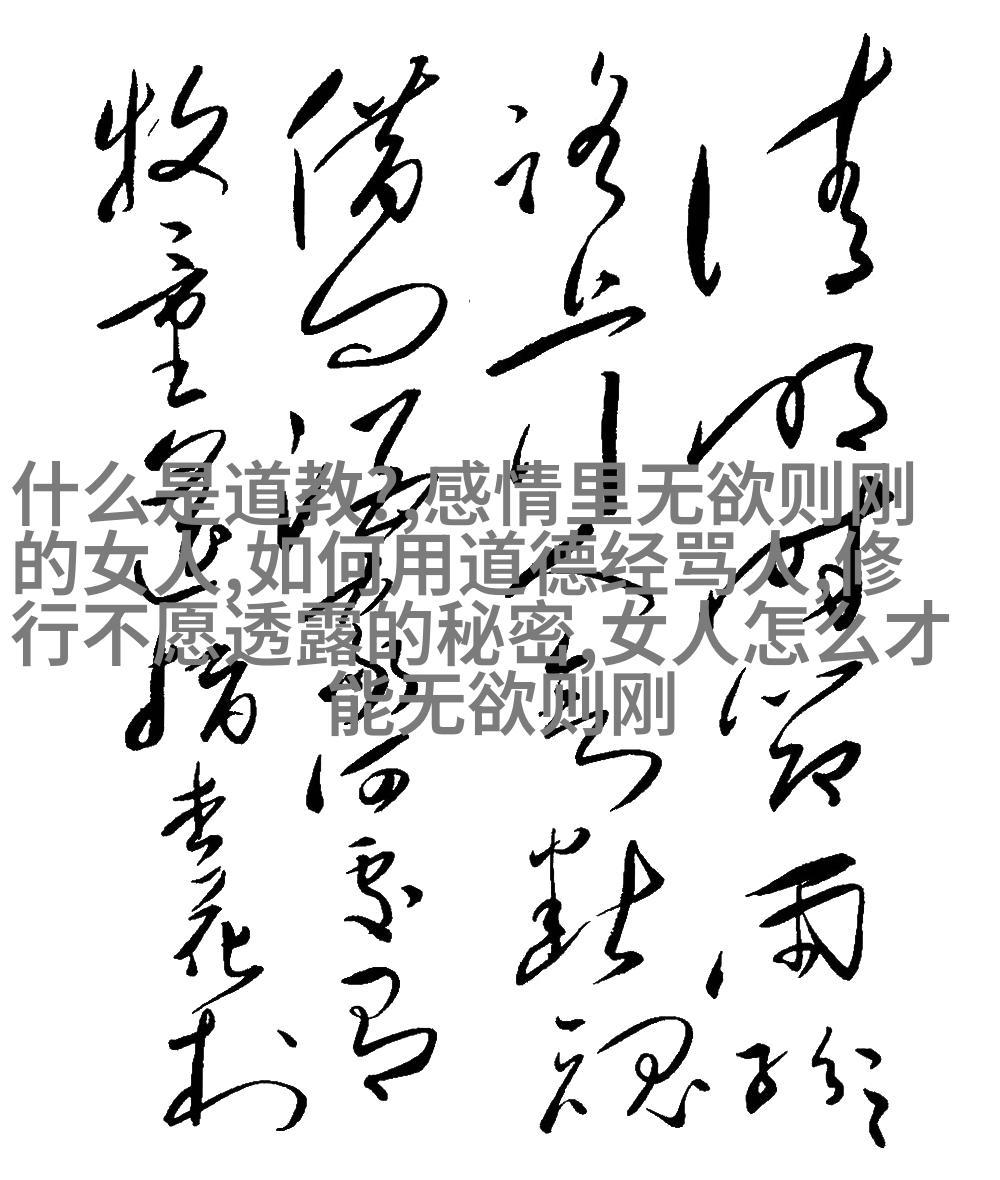 清明時節雨紛々
路上行人欲斷魂
借問酒家何處有
牧童遙指杏花村
什么是道教?,感情里无欲则刚
的女人,如何用道德经骂人,修
行不愿透露的秘密,女人怎么才
能无欲则刚